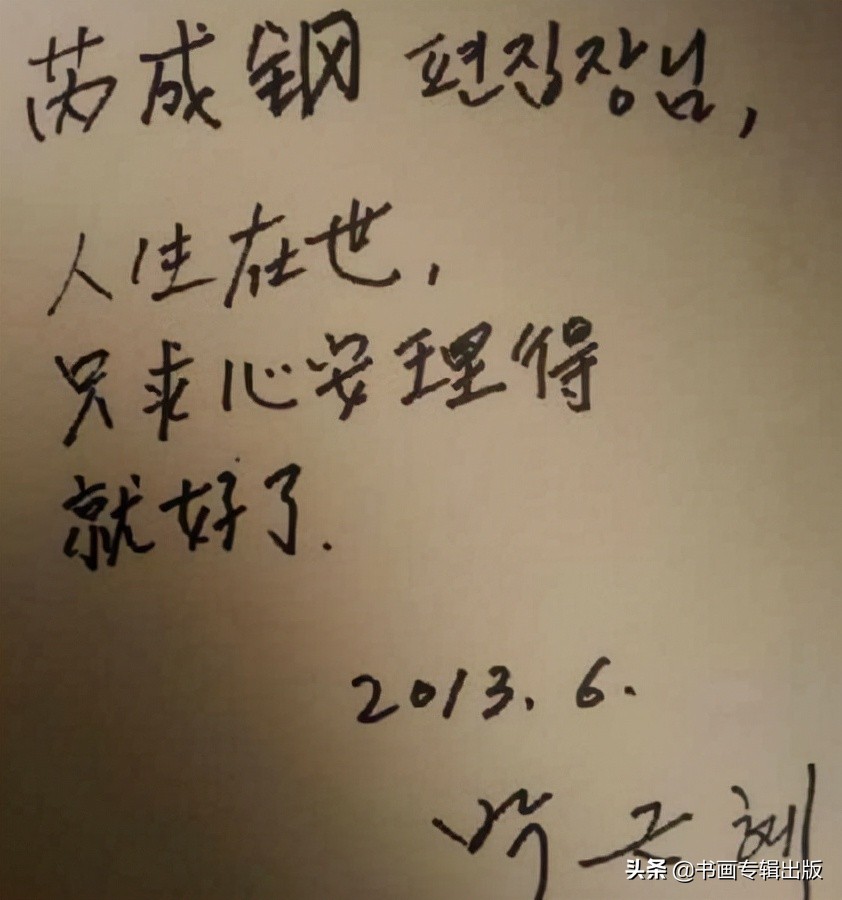 芮成钢 편집장님,
人生在世,
只求心安理得
就好了.
2013. 6.
박근혜
头条 @书画专辑出版